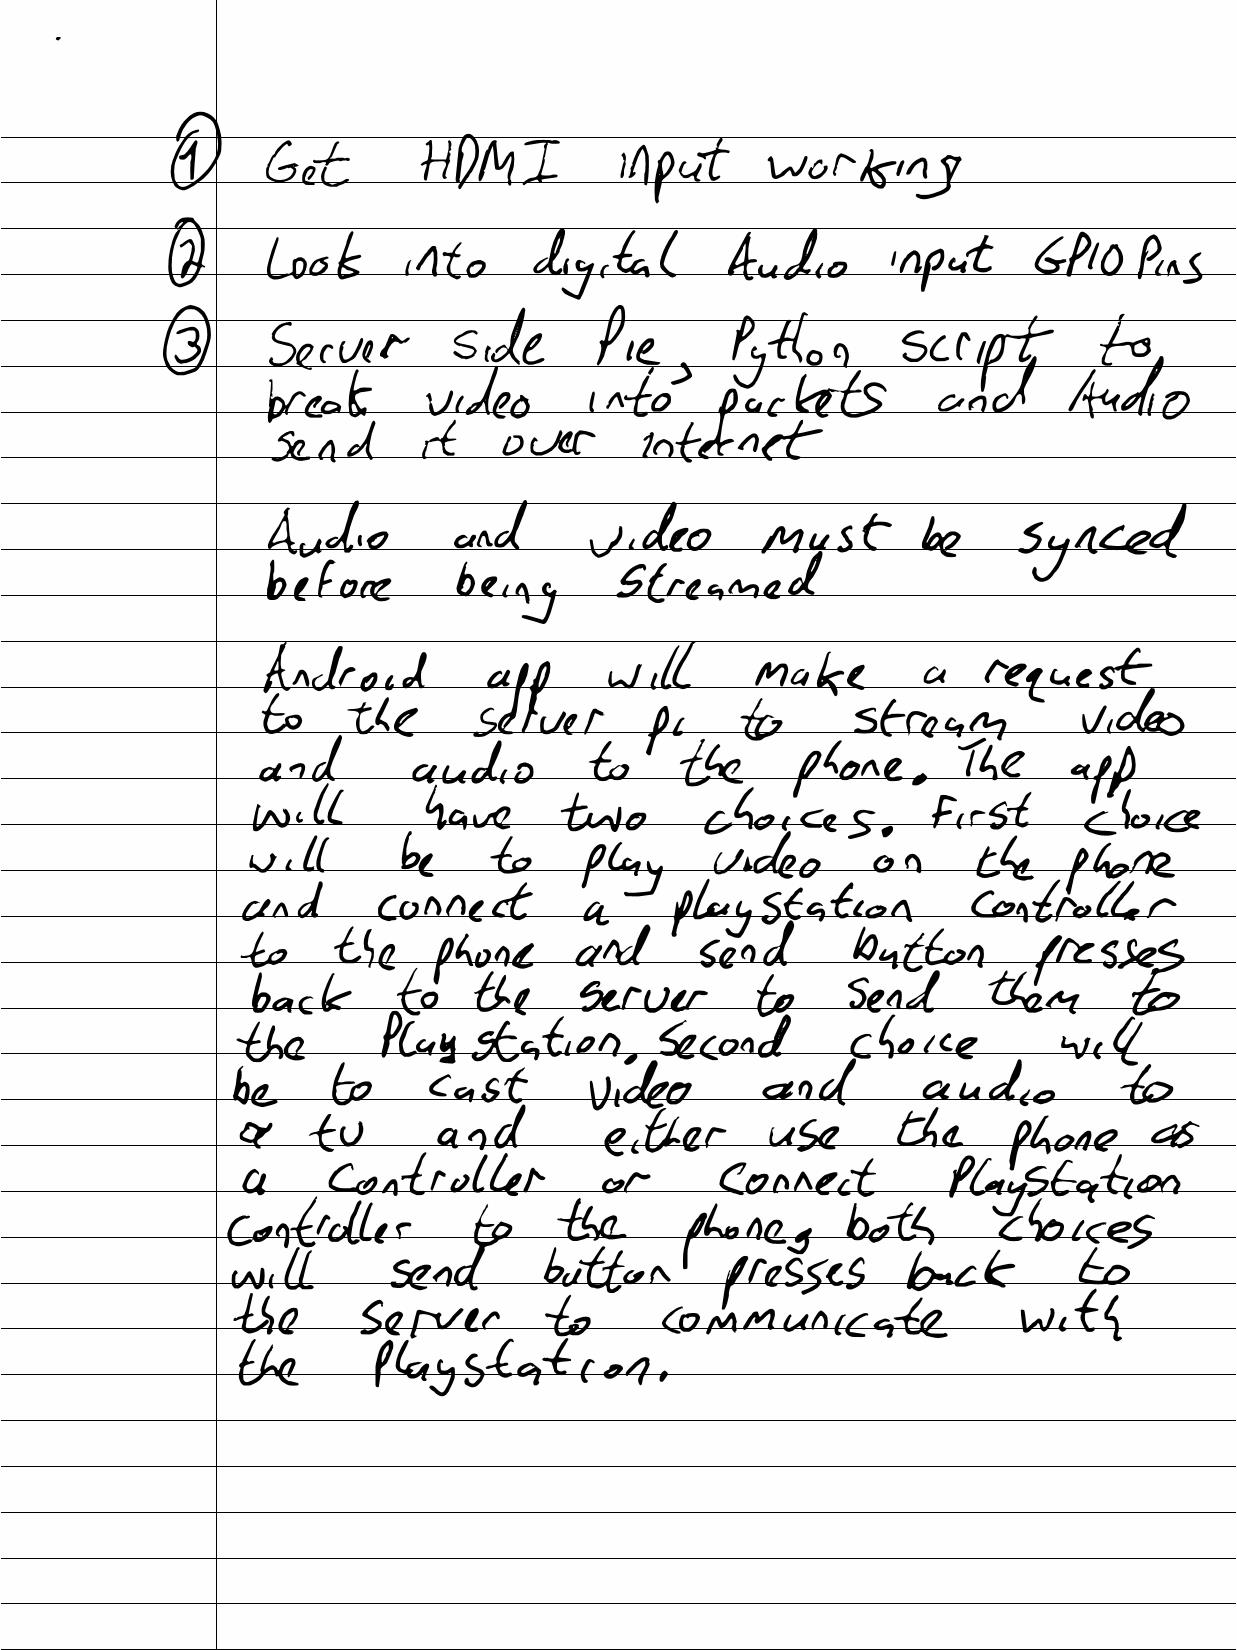 ① Get HDMI input working
② Look into digital Audio input GPIO Pins
③ Server side Pie, Python script to
break video into packets and Audio
send it over internet
Audio and video must be synced
before being streamed
Android app will make a request
to the server pi to stream video
and audio to the phone. The app
will have two choices. First choice
will be to play video on the phone
and connect a playstation controller
to the phone and send button presses
back to the server to send them to
the Playstation. Second choice will
be to cast video and audio to
a tv and either use the phone as
a controller or connect Playstation
controller to the phone, both choices
will send button presses back to
the server to communicate with
the Playstation.